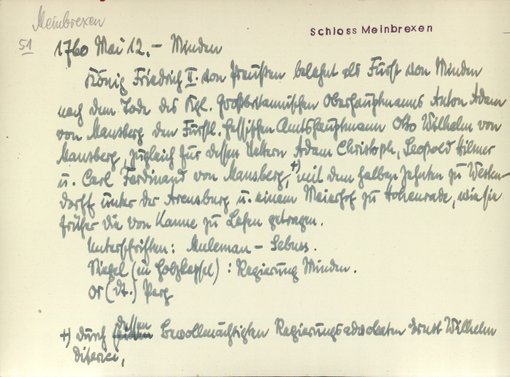 Meinbrexen
Schloss Meinbrexen
51
1760 Mai 12.- Minden
König Friedrich II. von Preußen belehnt als Fürst von Minden
nach dem Tode des Kgl. Großbritannischen Oberhauptmanns Anton Adam
von Mansberg den Fürstl. Hessischen Amtshauptmann Otto Wilhelm von
Mansberg, zugleich für dessen Vettern Adam Christoph, Leopold Hilmer
u. Carl Ferdinand von Mansberg, +) mit dem halben Zehnten zu Westen-
dorff unter der Arensburg u. einem Meierhof zu Hohenrade, wie sie
früher die von Kanne zu Lehen getragen.
Unterschriften:
Siegel (in Holzkapsel): Regierung Minden.
Or (dt.) Perg
+) durch dessen Bevollmächtigten Regierungsadvokaten Ernst Wilhelm